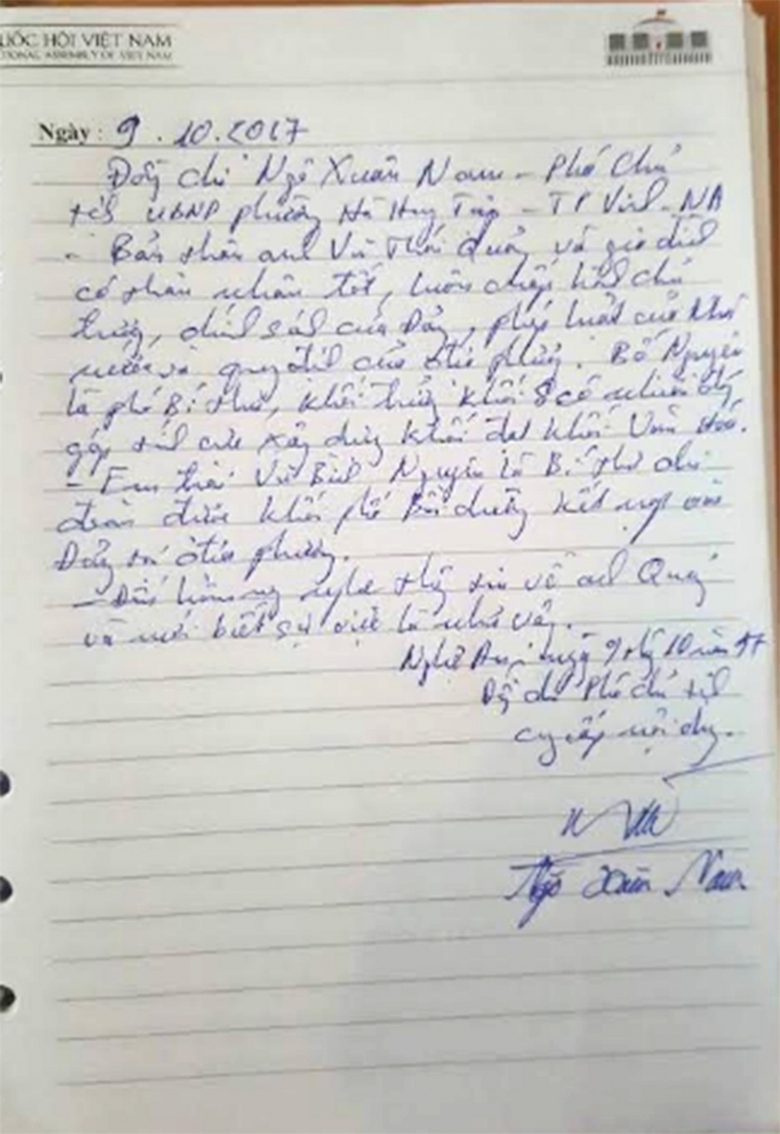 QUỐC HỘI VIỆT NAM
NATIONAL ASSEMBLY OF VIET NAM
Ngày : 9.10.2017
Đồng chí Ngô Xuân Nam - Phó Chủ
tịch UBND phường Hà Huy Tập - TP Vinh - NA
- Bản thân anh Vũ Thái Quảng và gia đình
có thân nhân tốt, luôn chấp hành chủ
trương, chính sách của Đảng, pháp luật của Nhà
nước và quy định của địa phương. Bố Nguyên
là phó Bí thư, khối trưởng khối 8 có nhiều đóng
góp tích cực xây dựng khối đạt khối Văn hóa.
- Em trai Vũ Bình Nguyên là Bí thư chi
đoàn được khối phố bồi dưỡng kết nạp vào
Đảng tại địa phương.
- Đến hôm nay nghe thông tin về anh Quảng
và mới biết sự việc là như vậy.
Nghệ An, ngày 9 tháng 10 năm 17
Đồng chí Phó chủ tịch
cung cấp nội dung.
Ngô Xuân Nam